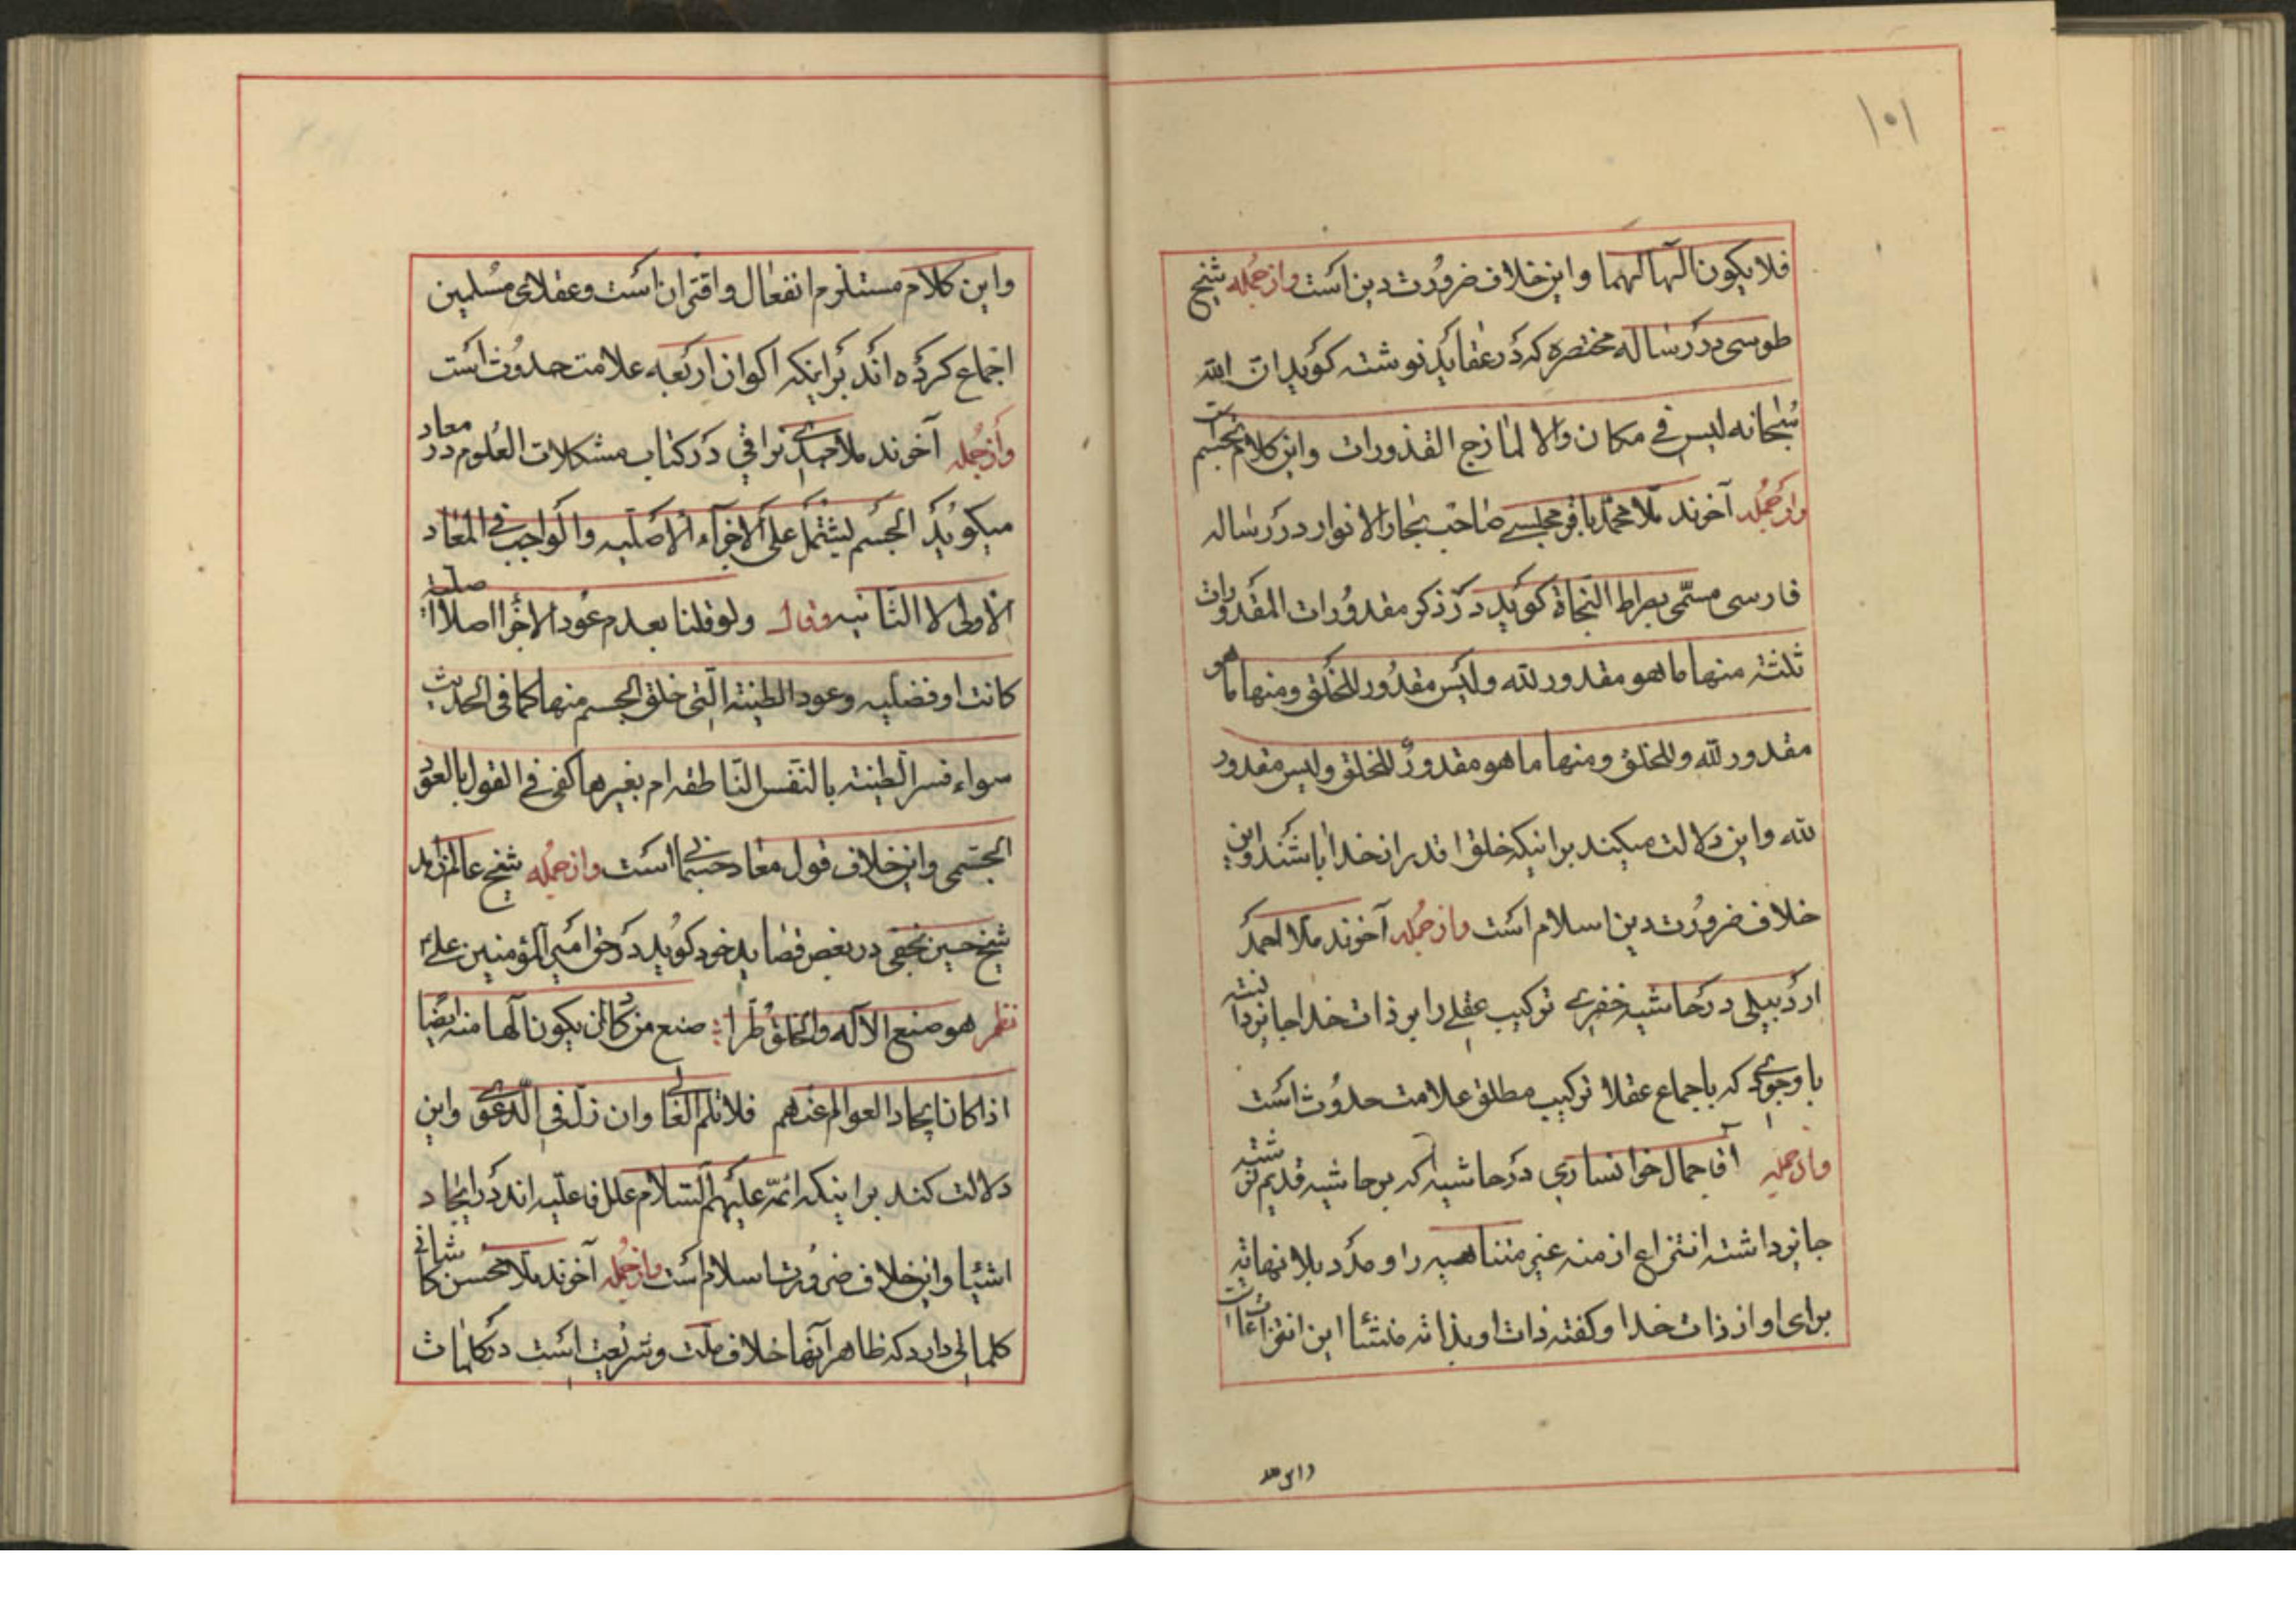 ١٠١
فلا یکون الها لهما و این خلاف ضرورت دین است و از جمله شیخ
طوسی در رساله مختصره که در عقاید نوشته کوید ان الله
سبحانه لیس فی مکان والا لمازج القذورات و این کلام تجسم است
و از جمله آخوند ملا محمد باقر مجلسی صاحب بحار الانوار در رساله
فارسی مسمی بصراط النجاة کوید در ذکر مقدورات المقدورات
ثلثة منها ما هو مقدور لله ولیس مقدور للخلق ومنها ما هو
مقدور لله وللخلق ومنها ما هو مقدور للخلق ولیس مقدور
لله و این دلالت میکند بر اینکه خلق اقدر از خدا باشند و این
خلاف ضرورت دین اسلام است و از جمله آخوند ملا احمد
اردبیلی در حاشیه خفری ترکیب عقلی را بر ذات خدا جایز دانسته
با وجودی که باجماع عقلا ترکیب مطلق علامت حدوث است
و از جمله آقا جمال خوانساری در حاشیه که بر حاشیه قدیم نوشته
جایز داشته انتزاع ازمنه غیر متناهیه را و مدد بلا نهایة
برای او از ذات خدا و کفته ذات او بذاته منشأ این انتزاعات است
و این کلام مستلزم انفعال و اقتران است و عقلای مسلمین
اجماع کرده اند بر اینکه اکوان اربعه علامت حدوث است
و از جمله آخوند ملا مهدی نراقی در کتاب مشکلات العلوم در معاد
میکوید الجسم یشتمل علی الاجزاء الاصلیه والواجب فی المعاد
الاولی لا الثانیه وقال ولو قلنا بعدم عود الاجزا اصلا اصلیة
کانت او فضلیه وعود الطینة التی خلق الجسم منها کما فی الحدیث
سواء فسر الطینة بالنفس الناطقه ام بغیرها کفی فی القول بالعود
الجسمی و این خلاف قول معاد جسمانی است و از جمله شیخ عالم زاهد
شیخ حسین نجفی در بعض قصاید خود کوید در حق امیر المؤمنین علیه
نظم هو صنع الاله والخلق طرا صنع من کاد ان یکون الها منه ایضا
اذا کان ایجاد العوالم عندهم فلا تلم الغالی وان زل فی الدعوی و این
دلالت کند بر اینکه ائمه علیهم السلام علل فاعلیه اند در ایجاد
اشیا و این خلاف ضرورت اسلام است و از جمله آخوند ملا محسن کاشانی
کلماتی دارد که ظاهر آنها خلاف ملت و شریعت است در کلمات